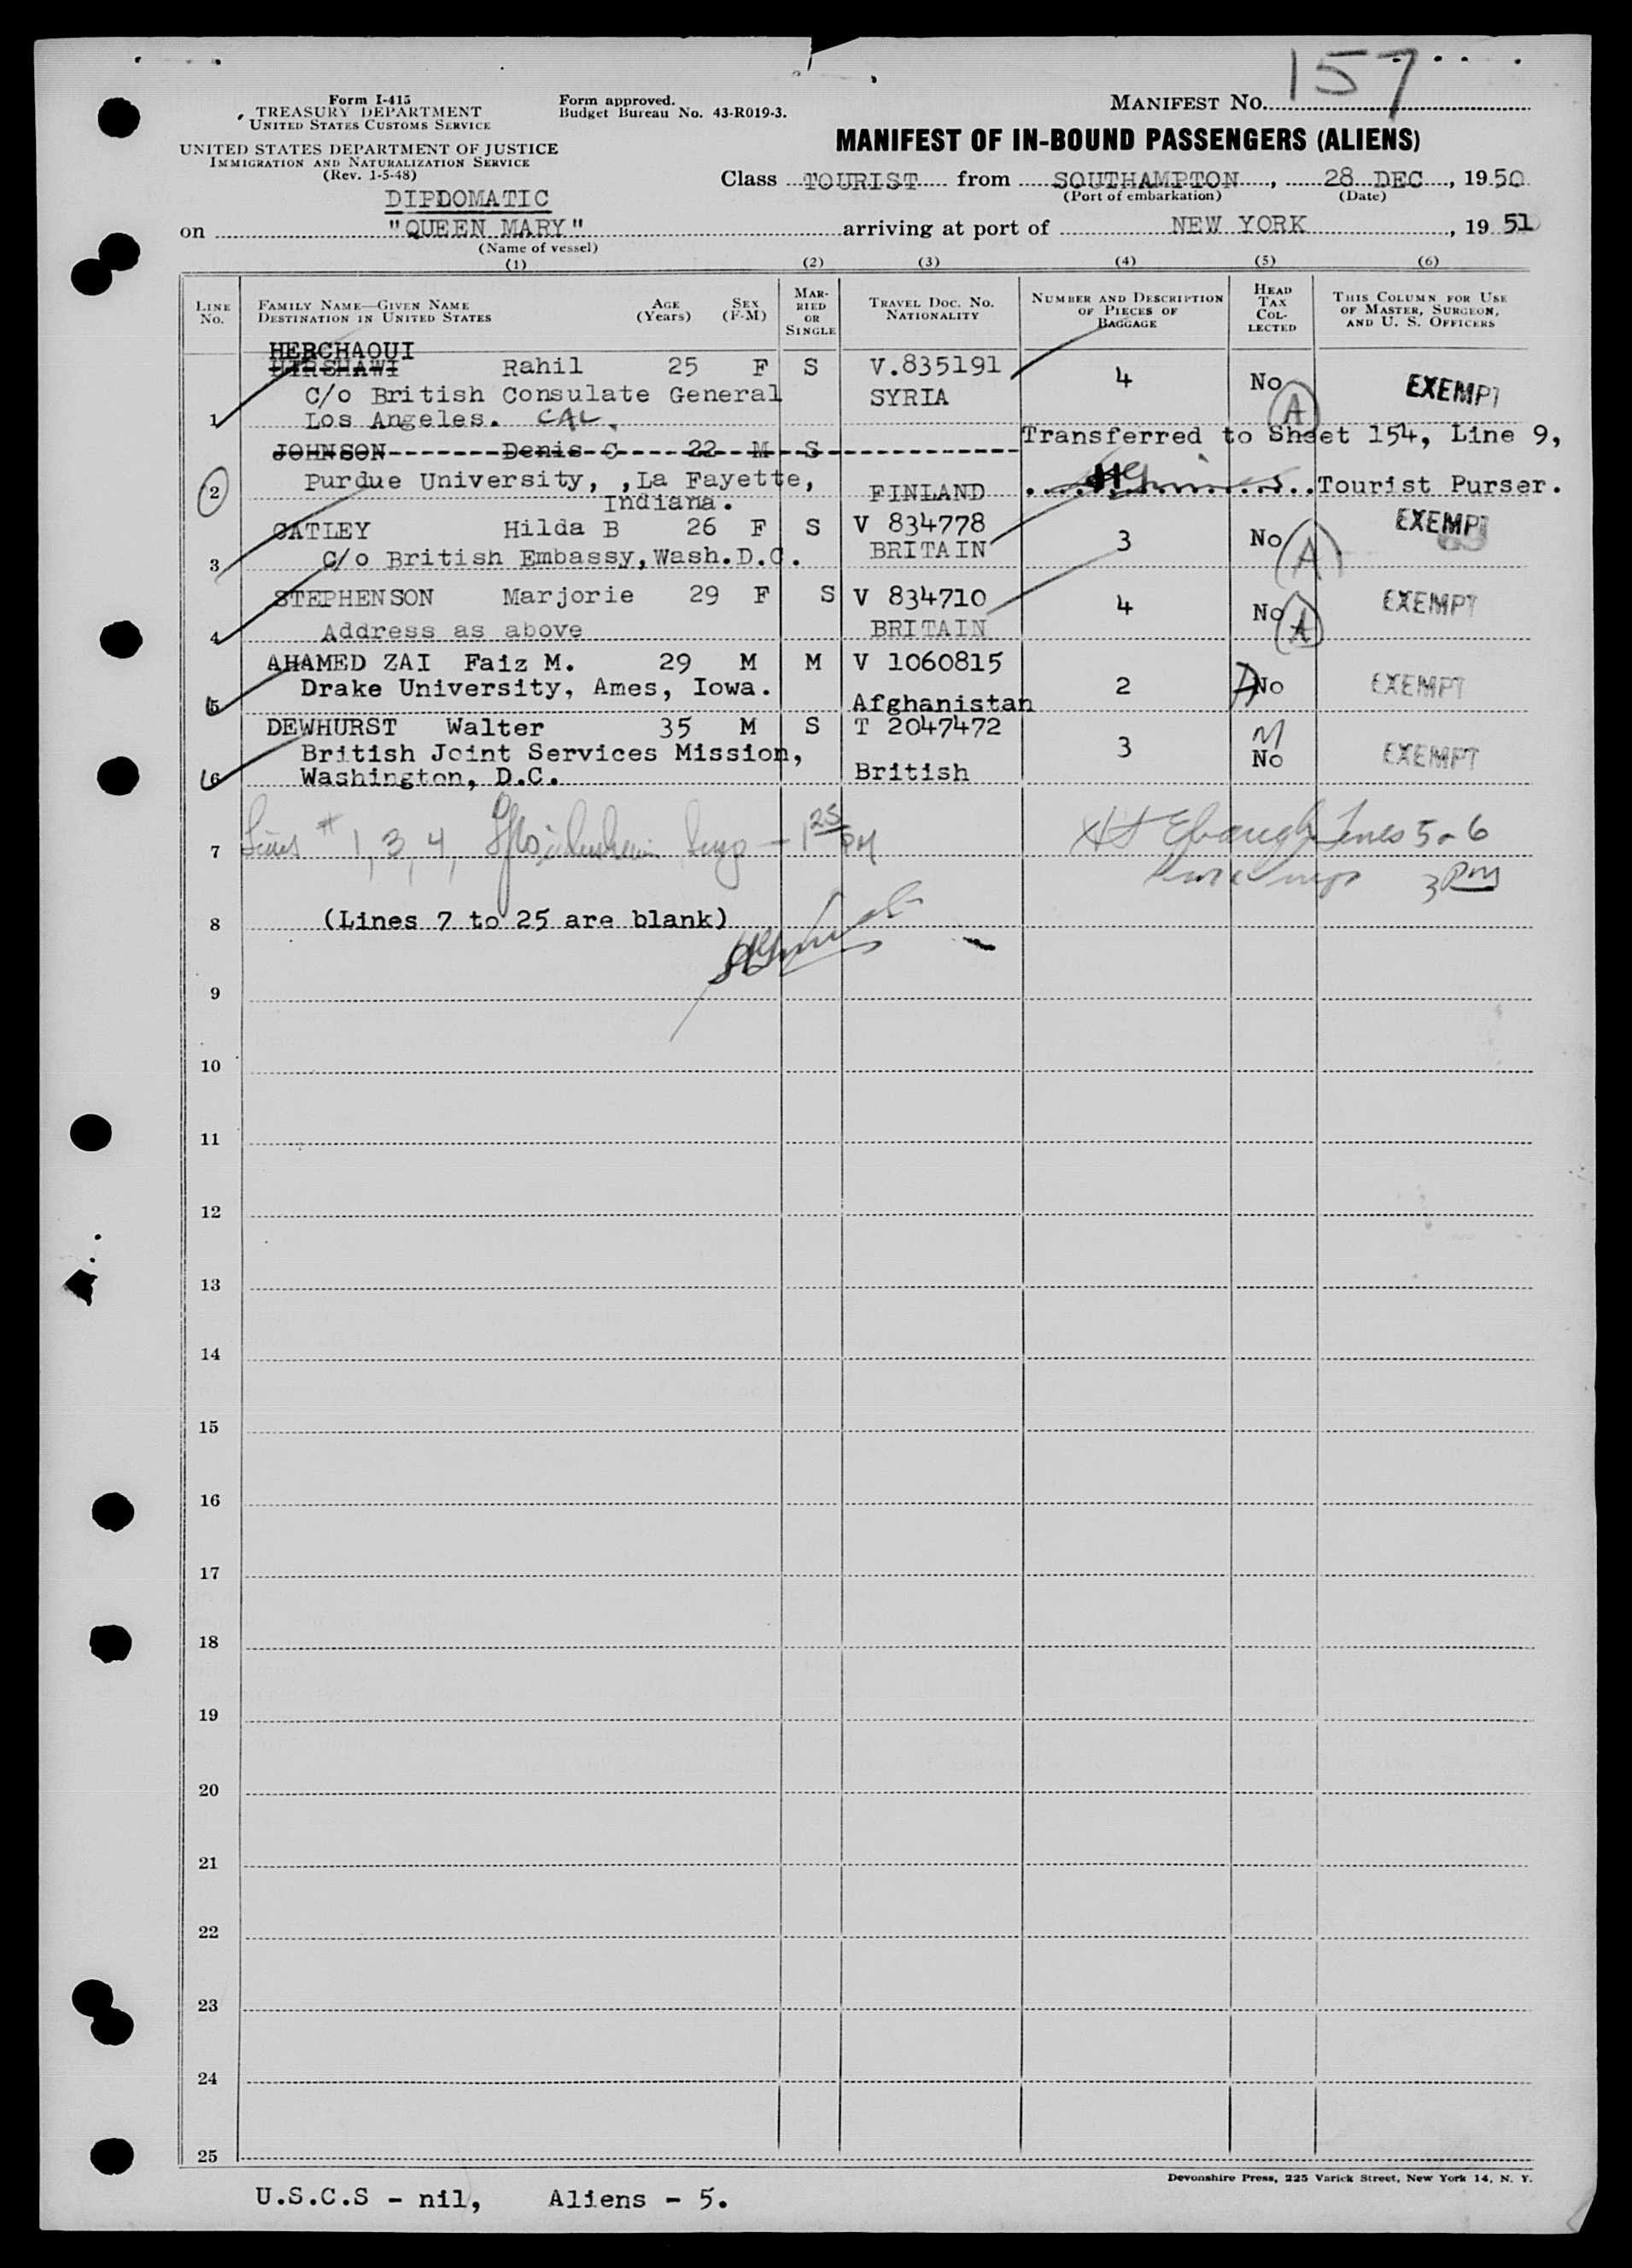 157
Form I-415
TREASURY DEPARTMENT
UNITED STATES CUSTOMS SERVICE
UNITED STATES DEPARTMENT OF JUSTICE
IMMIGRATION AND NATURALIZATION SERVICE
(Rev. 1-5-48)
Form approved.
Budget Bureau No. 43-R019-3.
MANIFEST NO.
MANIFEST OF IN-BOUND PASSENGERS (ALIENS)
Class TOURIST from SOUTHAMPTON, 28 DEC, 1950
(Port of embarkation) (Date)
DIPLOMATIC
on "QUEEN MARY" arriving at port of NEW YORK, 1951
(Name of vessel)
(1) (2) (3) (4) (5) (6)
LINE NO.
FAMILY NAME—GIVEN NAME
DESTINATION IN UNITED STATES
AGE (Years)
SEX (F-M)
MARRIED OR SINGLE
TRAVEL DOC. NO. NATIONALITY
NUMBER AND DESCRIPTION OF PIECES OF BAGGAGE
HEAD TAX COLLECTED
THIS COLUMN FOR USE OF MASTER, SURGEON, AND U. S. OFFICERS
HERCHAOUI
HIRSHAWI Rahil 25 F S V.835191 4 No EXEMPT
C/o British Consulate General SYRIA A
1 Los Angeles. CAL.
JOHNSON Denis C 22 M S Transferred to Sheet 154, Line 9,
2 Purdue University, ,La Fayette, FINLAND Tourist Purser.
Indiana.
CATLEY Hilda B 26 F S V 834778 3 No EXEMPT
3 C/o British Embassy, Wash.D.C. BRITAIN A
STEPHENSON Marjorie 29 F S V 834710 4 No EXEMPT
4 Address as above BRITAIN A
AHAMED ZAI Faiz M. 29 M M V 1060815
5 Drake University, Ames, Iowa. Afghanistan 2 A No EXEMPT
DEWHURST Walter 35 M S T 2047472 3 M
British Joint Services Mission, No EXEMPT
6 Washington, D.C. British
7 Lines # 1, 3, 4, 1 25 PM Lines 5-6
3 PM
8 (Lines 7 to 25 are blank)
9
10
11
12
13
14
15
16
17
18
19
20
21
22
23
24
25
Devonshire Press, 225 Varick Street, New York 14, N. Y.
U.S.C.S - nil, Aliens - 5.